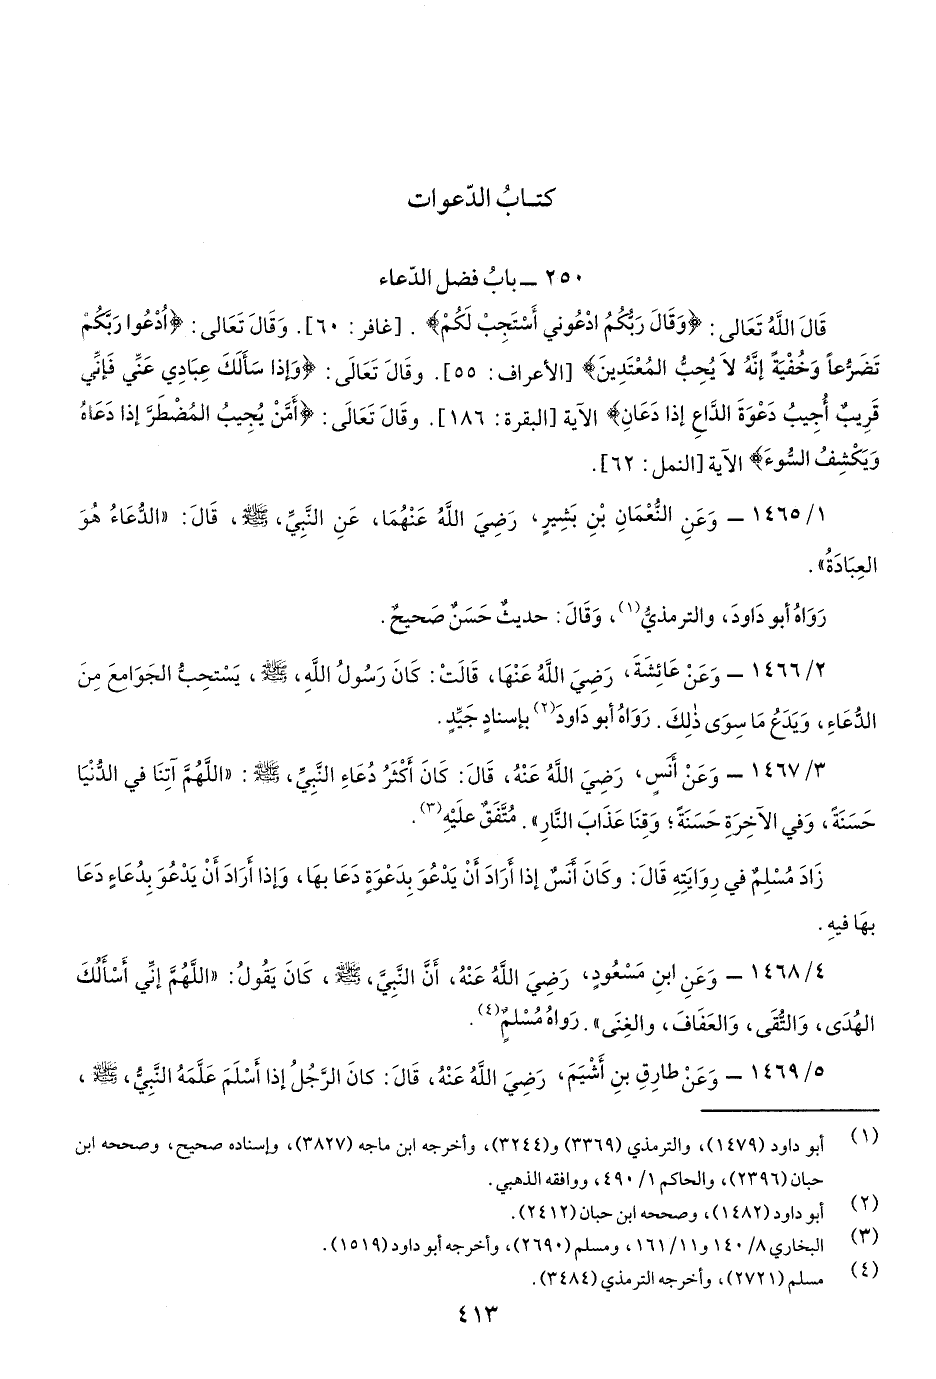 كتـابُ الدّعوات
٢٥٠ ـ بابُ فضل الدّعاء
قَالَ اللَّهُ تَعَالى: ﴿وَقَالَ رَبُّكُمُ ادْعُوني أَسْتَجِبْ لَكُمْ﴾ . [غافر: ٦٠]. وَقَالَ تَعَالى: ﴿أُدْعُوا رَبَّكُمْ
تَضَرُّعاً وَخُفْيَةً إنَّهُ لاَ يُحِبُّ المُعْتَدِينَ﴾ [الأعراف: ٥٥]. وقَالَ تَعَالى: ﴿وَإذا سَأَلَكَ عِبَادِي عَنِّي فَإنِّي
قَرِيبٌ أُجِيبُ دَعْوَةَ الدَّاعِ إذا دَعَانِ﴾ الآية [البقرة: ١٨٦]. وقَالَ تَعَالَى: ﴿أَمَّنْ يُجِيبُ المُضْطَرَّ إذا دَعَاهُ
وَيَكْشِفُ السُّوءَ﴾ الآية [النمل: ٦٢].
١/ ١٤٦٥ ـ وَعَنِ النُّعْمَانِ بْنِ بَشِيرٍ، رَضِيَ اللَّهُ عَنْهُمَا، عَنِ النَّبِيِّ، ﷺ، قَالَ: «الدُّعَاءُ هُوَ
العِبَادَةُ».
رَوَاهُ أبو دَاودَ، والترمذيُّ(١)، وَقَالَ: حديثٌ حَسَنٌ صَحيحٌ.
٢/ ١٤٦٦ ـ وَعَنْ عَائِشَةَ، رَضِيَ اللَّهُ عَنْهَا، قَالَتْ: كَانَ رَسُولُ اللَّهِ، ﷺ، يَسْتَحِبُّ الجَوَامِعَ مِنَ
الدُّعَاءِ، وَيَدَعُ مَا سِوَى ذٰلِكَ. رَوَاهُ أبو دَاودَ(٢) بإسنادٍ جَيِّدٍ.
٣/ ١٤٦٧ ـ وَعَنْ أَنَسٍ، رَضِيَ اللَّهُ عَنْهُ، قَالَ: كَانَ أَكْثَرُ دُعَاءِ النَّبِيِّ، ﷺ: «اللَّهُمَّ آتِنَا في الدُّنْيَا
حَسَنَةً، وَفي الآخِرَةِ حَسَنَةً؛ وَقِنَا عَذَابَ النَّارِ». مُتَّفَقٌ عَلَيْهِ(٣).
زَادَ مُسْلِمٌ في رِوايَتِهِ قَالَ: وكَانَ أَنَسٌ إذا أَرَادَ أَنْ يَدْعُوَ بِدَعْوَةٍ دَعَا بها، وَإذا أَرَادَ أَنْ يَدْعُوَ بِدُعَاءٍ دَعَا
بهَا فيهِ.
٤/ ١٤٦٨ ـ وَعَنِ ابنِ مَسْعُودٍ، رَضِيَ اللَّهُ عَنْهُ، أَنَّ النَّبِيَّ، ﷺ، كَانَ يَقُولُ: «اللَّهُمَّ إنِّي أَسْأَلُكَ
الهُدَى، وَالتُّقَى، وَالعَفَافَ، والغِنَى». رَواهُ مُسْلمٌ(٤).
٥/ ١٤٦٩ ـ وَعَنْ طارِقِ بنِ أَشْيَمَ، رَضِيَ اللَّهُ عَنْهُ، قَالَ: كانَ الرَّجُلُ إذا أَسْلَمَ عَلَّمَهُ النَّبِيُّ، ﷺ،
(١) أبو داود (١٤٧٩)، والترمذي (٣٣٦٩) و(٣٢٤٤)، وأخرجه ابن ماجه (٣٨٢٧)، وإسناده صحيح، وصححه ابن
حبان (٢٣٩٦)، والحاكم ١/ ٤٩٠، ووافقه الذهبي.
(٢) أبو داود (١٤٨٢)، وصححه ابن حبان (٢٤١٢).
(٣) البخاري ٨/ ١٤٠ و١١/ ١٦١، ومسلم (٢٦٩٠)، وأخرجه أبو داود (١٥١٩).
(٤) مسلم (٢٧٢١)، وأخرجه الترمذي (٣٤٨٤).
٤١٣